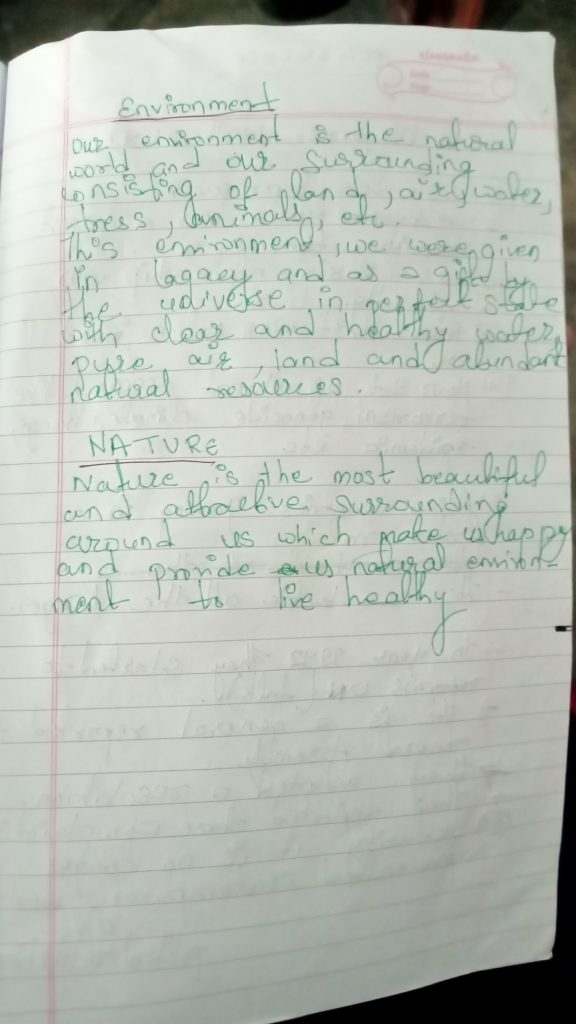 classmate
Date
Page
Environment
our environment is the natural
world and our surrounding
consisting of land, air, water,
tress, animals, etc.
This environment, we were given
in lagacy and as a gift by
the udiverse in perfect state
with clear and healthy water,
pure air, land and abundant
natural resources.
NATURE
Nature is the most beautiful
and attractive surrounding
around us which make us happy
and provide us natural environ-
ment to live healthy